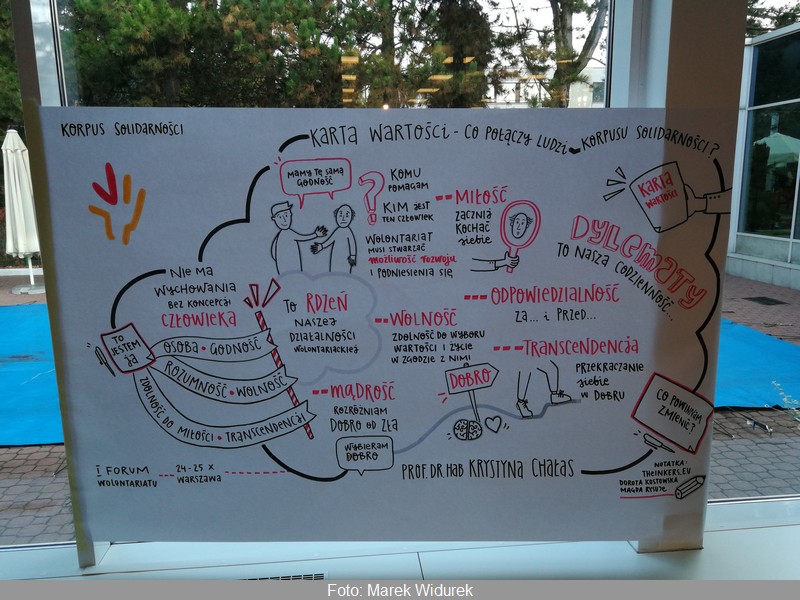 KORPUS SOLIDARNOŚCI
KARTA WARTOŚCI - CO POŁĄCZY LUDZI KORPUSU SOLIDARNOŚCI?
MAMY TĘ SAMĄ
GODNOŚĆ
?
KOMU
POMAGAM
KIM JEST
TEN CZŁOWIEK
WOLONTARIAT
MUSI STWARZAĆ
MOŻLIWOŚĆ ROZWOJU
I PODNIESIENIA SIĘ
MIŁOŚĆ
ZACZNIJ
KOCHAĆ
SIEBIE
KARTA
WARTOŚCI
DYLEMATY
TO NASZA CODZIENNOŚĆ...
NIE MA
WYCHOWANIA
BEZ KONCEPCJI
CZŁOWIEKA
TO
JESTEM
JA
OSOBA • GODNOŚĆ
ROZUMNOŚĆ • WOLNOŚĆ
ZDOLNOŚĆ DO MIŁOŚCI • TRANSCENDENCJI
TO RDZEŃ
NASZEJ
DZIAŁALNOŚCI
WOLONTARIACKIEJ
ODPOWIEDZIALNOŚĆ
ZA... I PRZED...
WOLNOŚĆ
ZDOLNOŚĆ DO WYBORU
WARTOŚCI I ŻYCIE
W ZGODZIE Z NIMI
TRANSCENDENCJA
PRZEKRACZANIE
SIEBIE
W DOBRU
MĄDROŚĆ
ROZRÓŻNIAM
DOBRO OD ZŁA
DOBRO
WYBIERAM
DOBRO
CO POWINNAM
ZMIENIĆ?
I FORUM
WOLONTARIATU
24-25 X
WARSZAWA
PROF. DR HAB KRYSTYNA CHAŁAS
NOTATKA:
THEINKERS.EU
DOROTA KOSTOWSKA
MAGDA RYSUJE
Foto: Marek Widurek